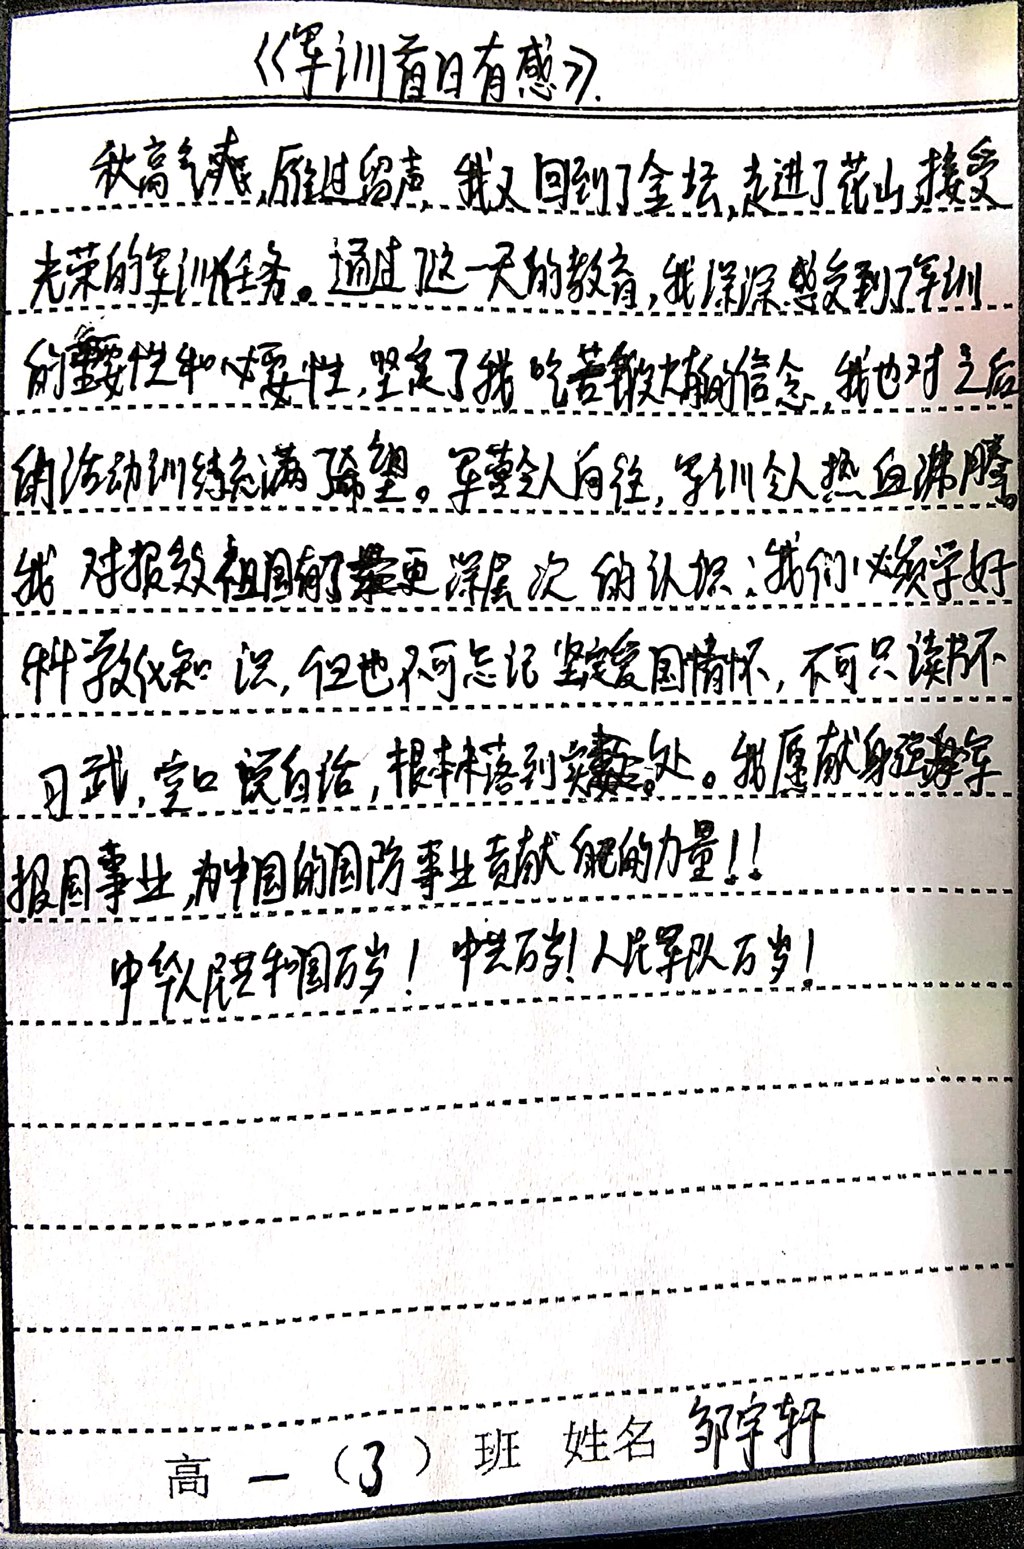 《军训首日有感》.
秋高气爽,雁过留声,我又回到了金坛,走进了花山,接受
光荣的军训任务。通过了这一天的教育,我深深感受到了军训
的重要性和必要性,坚定了我吃苦耐劳的信念,我也对之后
的活动训练充满了希望。军营令人向往,军训令人热血沸腾。
我对报效祖国有了更深层次的认识:我们必须学好
科学文化知识,但也不可忘记坚定爱国情怀,不可只读书不
习武,空口说白话,根本未落到实处。我愿献身强军
报国事业,为中国的国防事业贡献自己的力量!!
中华人民共和国万岁!中共万岁!人民军队万岁!
高一(3)班 姓名 邹宇轩